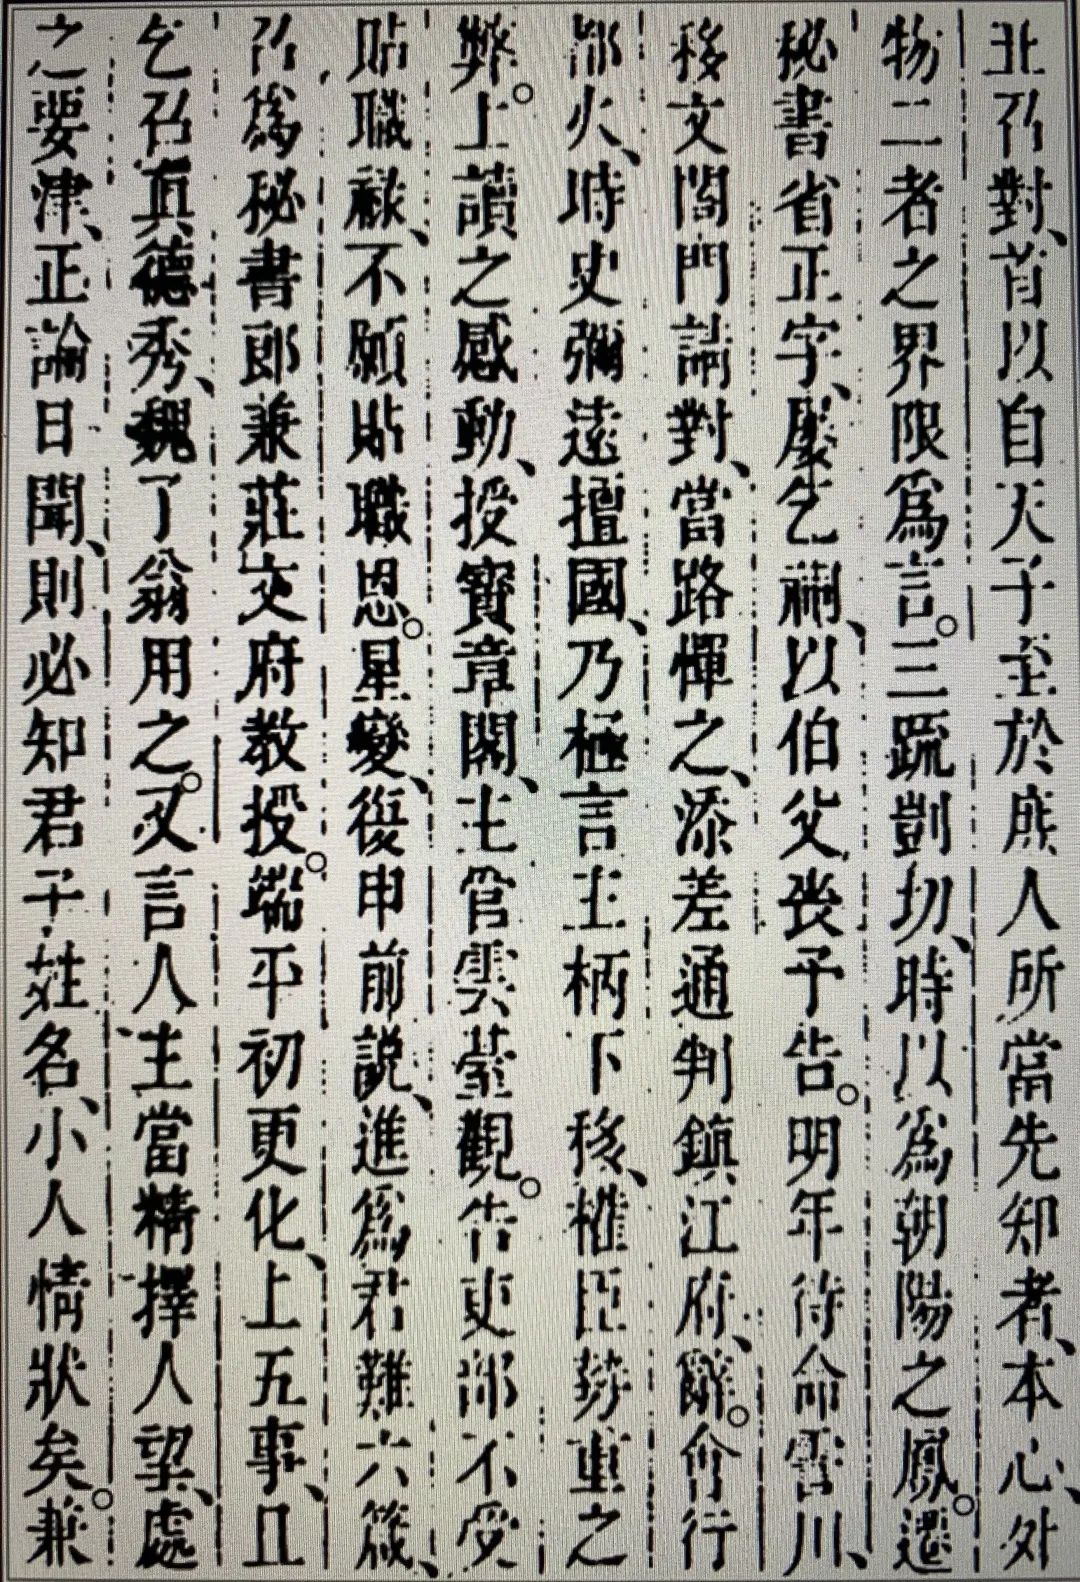 北召對、首以自天子至於庶人所當先知者、本心、外
物二者之界限爲言。三疏剴切、時以爲朝陽之鳳。遷
秘書省正字、屢乞祠、以伯父喪予告。明年待命霅川、
移文閤門請對、當路憚之、添差通判鎮江府、辭。會行
都火、時史彌遠擅國、乃極言主柄下移、權臣勢重之
弊。上讀之感動、授寶章閣、主管雲臺觀。告吏部不受
貼職祿、不願貼職恩。星變、復申前說、進爲君難六箴、
召爲秘書郎兼莊文府教授。端平初更化、上五事、且
乞召真德秀、魏了翁用之。又言人主當精擇人望、處
之要津、正論日聞、則必知君子姓名、小人情狀矣。兼